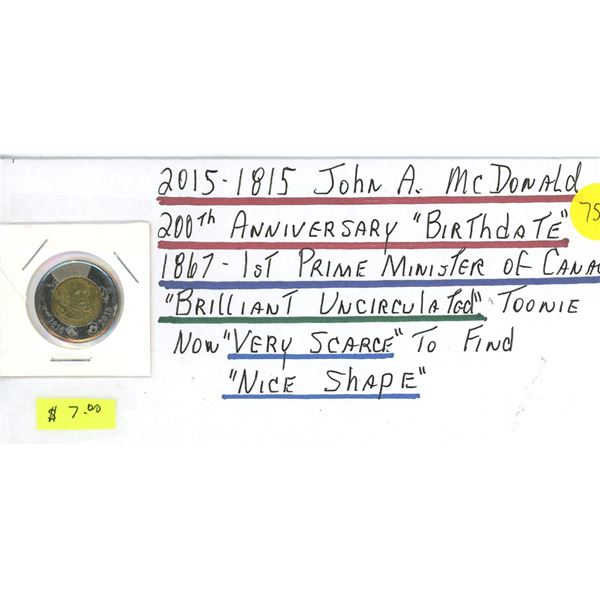 2015-1815 John A. McDonald
200th Anniversary "Birthdate"
75
1867-1st Prime Minister of Cana
"Brilliant Uncirculated" Toonie
Now "Very Scarce" To Find
"Nice Shape"
2015
$ 7.00